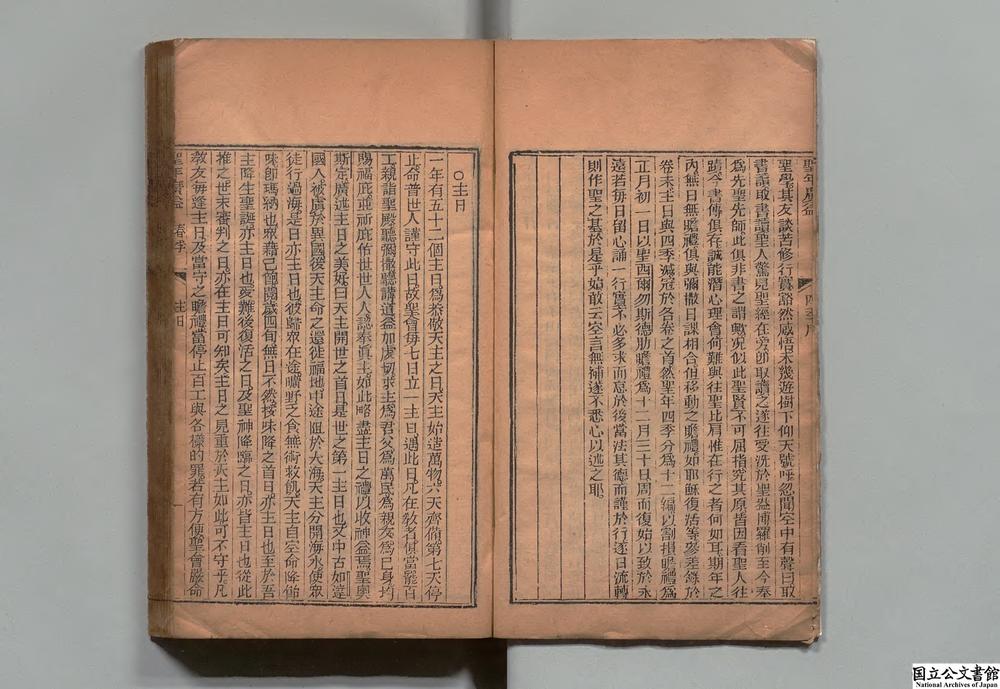 聖年廣益
聖學其友談苦修行實豁然感悟未幾遊樹下仰天號呼忽聞空中有聲曰取
書讀取書讀聖人驚見聖經在旁卽取讀之遂往受洗於聖盎博羅削至今奉
爲先聖先師此俱非書之謂歟況似此聖賢不可屈指究其原皆因看聖人往
蹟今書傳俱存誠能潛心理會何難與往聖比肩惟在行之者何如耳期年之
內無日無瞻禮俱與彌撒日課相合但移動之瞻禮如耶穌復活等參差錄於
卷末主日與四季減冠於各卷之首然聖年四季分爲十二編以割損瞻禮爲
正月初一日以聖西爾勿斯德肋瞻禮爲十二月三十日周而復始以致於永
遠若每日留心誦一行實不必多求而怠於後當法其德而謹於行逐日流轉
則作聖之基於是乎始敢云空言無補遂不悉心以述之耶
○主日
一年有五十二個主日爲恭敬天主之日天主始造萬物六天齊備第七天停
止命普世人謹守此日故聖會每七日立一主日遇此日凡在敎者俱當罷百
工親詣聖殿聽彌撒聽講道益加虔切求主爲君父爲萬民爲親友爲己身均
賜福庇並祈庇佑世世人人認奉眞主如此略盡主日之禮以收神益焉聖奧
斯定廣述主日之美好曰天主開世之首日是世之第一主日也又中古如達
國人被虜於異國後天主命之還徙福地中途阻於大海天主分開海水使眾
徒行過海是日亦主日也彼歸眾在途曠野乏食無術救飢天主自空命降飴
味卽瑪納也眾藉己飽閱歲四旬無日不然按味降之首日亦主日也至於吾
主降生聖誕亦主日也受難後復活之日及聖神降臨之日亦皆主日也從此
推之世末審判之日亦在主日可知矣主日之見重於天主如此可不守乎凡
敎友每逢主日及當守之瞻禮當停止百工與各樣的罪若有方便聖會嚴命
聖年廣益 春季 主日 一
国立公文書館
National Archives of Japan